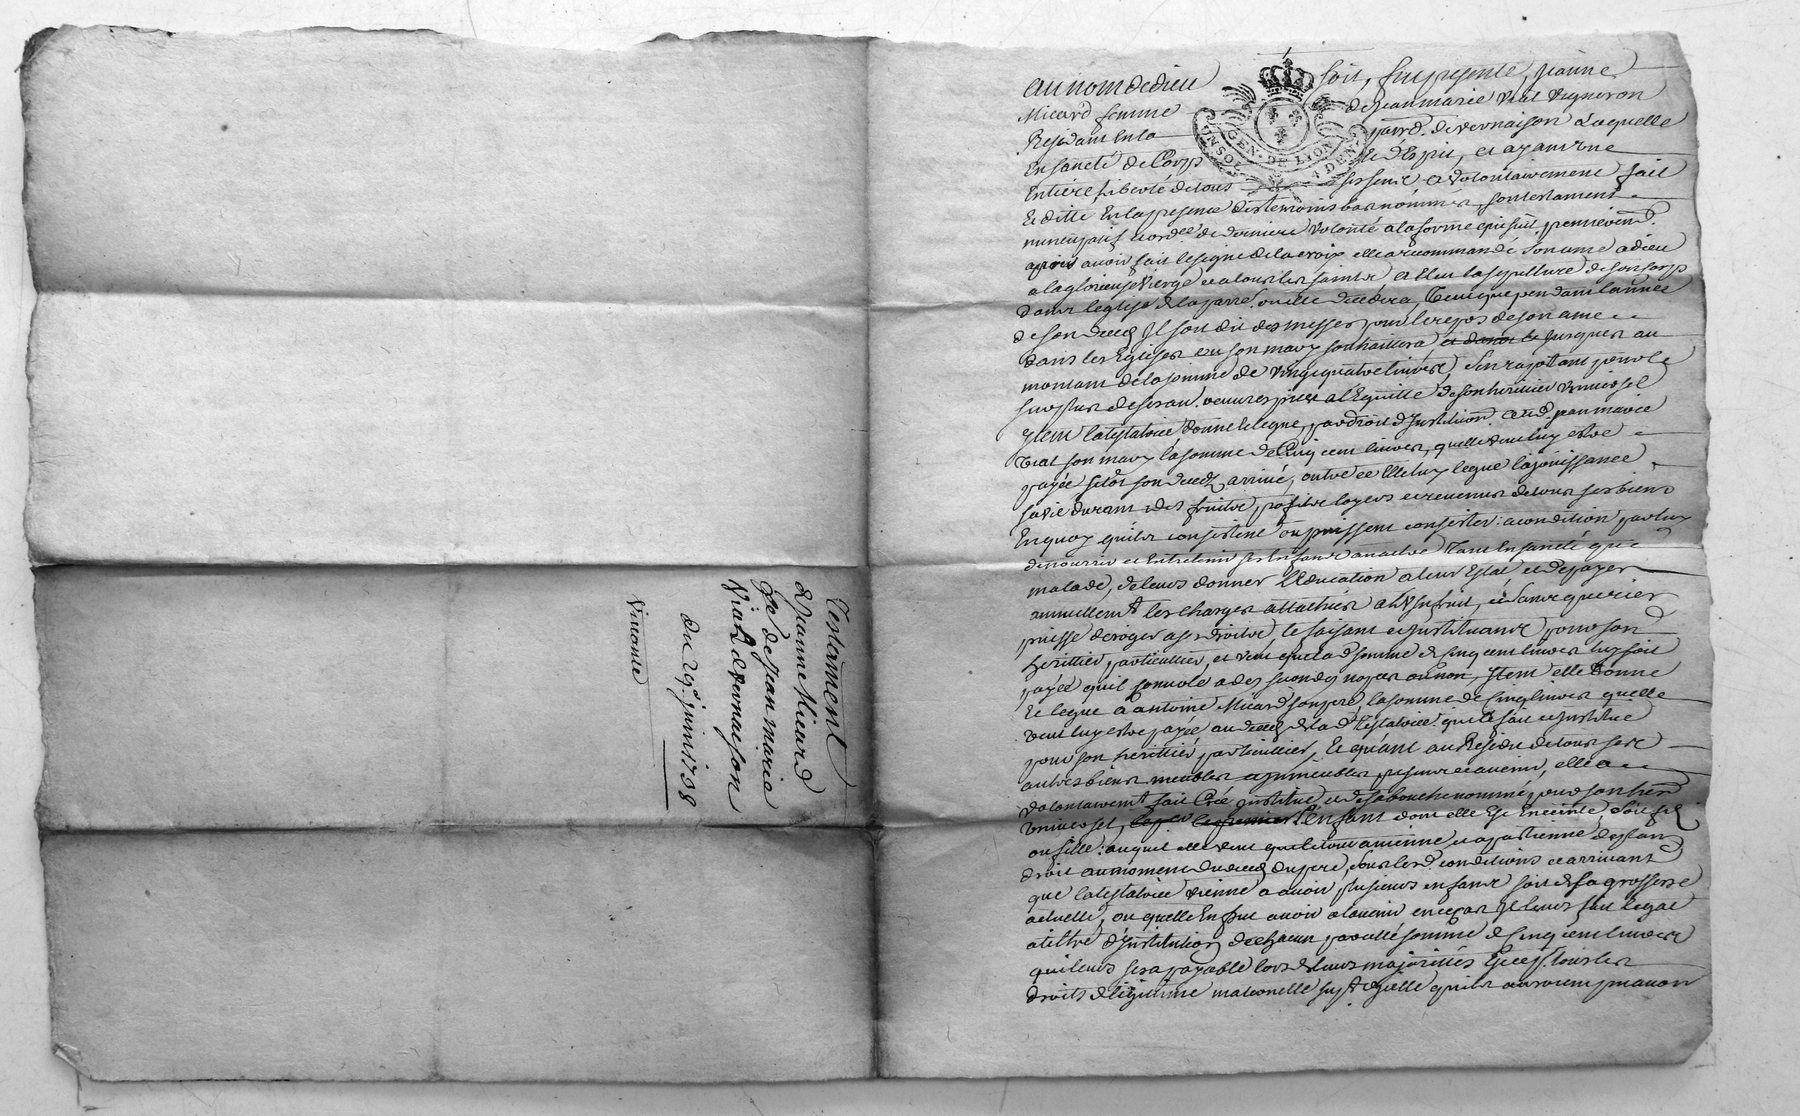 Testament
de Jeanne Micard
fe. de Jean maria
Viat de vernaison
du 29e. juin 1738
Vinante
au nom de dieu soit, fut presente, jeanne
Micard femme de Jean marie Viat Vigneron
Residant en la parr.d. de vernaison Laquelle
En sancté de Corps et d'Esprit, et ayant une
Entière liberté de tous ses sens a volontairement fait
et dicté En la presence des temoins bas nommés, son testament
nuncupatif et ord.ce de derniere volonté a la forme qui suit, premierem.t
apres avoir fait le signe de la croix elle a recommandé son ame a dieu
a la glorieuse Vierge et a tous les saints et Eleu la sepulture de son corps
dans leglise de la parr. ou elle decedera, Veut que pendant lannée
de son deces Il soit dit des messes pour le repos de son ame
dans les Eglises ou son mary souhaittera jusques au
montant de la somme de vingt quatre livres, s'en rapottant pour le
surplus de ses œuvres pies a l'Equitté de son heritier universel
Item la testatrice donne et legue, par droit d'Institution aud. jean marie
Viat son mary la somme de Cinq cent livres, quelle veut luy estre
payée sitôt son deces arrivé, outre ce Elle luy legue la jouissance
sa vie durant des fruits, profits loyers et revenus de tous ses biens
En quoy quils consistent ou puissent consister: a condition par luy
de nourrir et Entretenir ses Enfans tant En sancté que
malade, de leurs donner L'Education a leur Estat et de payer
annuellem.t les charges attachées a l'Usufruit, et sans que rien
puisse deroger a ses droits, le faisant et instituant pour son
heritier particullier, et veut que lad. somme de cinq cent livres luy soit
payée quil convole a des secondes nopces ou non, Item elle donne
et legue a antoine Micard son pere la somme de Cinq livres quelle
veut luy estre payée au deces de la d. testatrice. qui le fait et institue
pour son heritier particullier, Et quant au Residu de tous ses
autres biens meubles et immeubles presents et avenir, elle a
volontairem.t fait Créé institué et de sa bouche nommé pour son her.
universel, l'enfant dont elle Est Enceinte, soit fils
ou fille: auquel elle veut que le tout avienne et apartienne de plain
droit au moment du deces du pere sous les d. conditions et arrivant
que la testatrice vienne a avoir plusieurs enfants soit de sa grossesse
actuelle, ou quelle En put avoir a lavenir en ce cas Elle leurs fait legat
a tiltre d'Institution de chacun pareille somme de Cinq cent livres
qui leurs sera payable lors de leurs majorittés Excepté tous les
droits de legitime maternelle suplt. d'icelle quils auroient
GEN. DE LION
4 DEN.